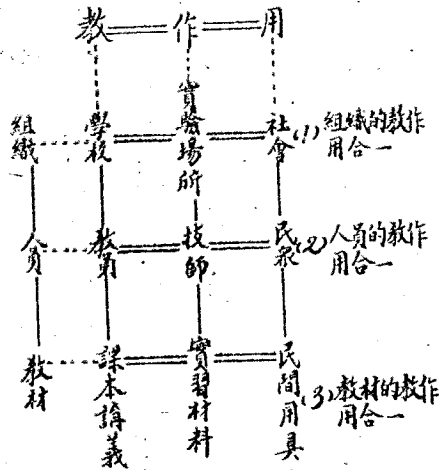 教 作 用
組織 學校 實驗場所 社會 (1) 組織的教作
用合一
人員 教員 技師 民衆 (2) 人員的教作
用合一
教材 課本講義 實習材料 民間用具 (3) 教材的教作
用合一